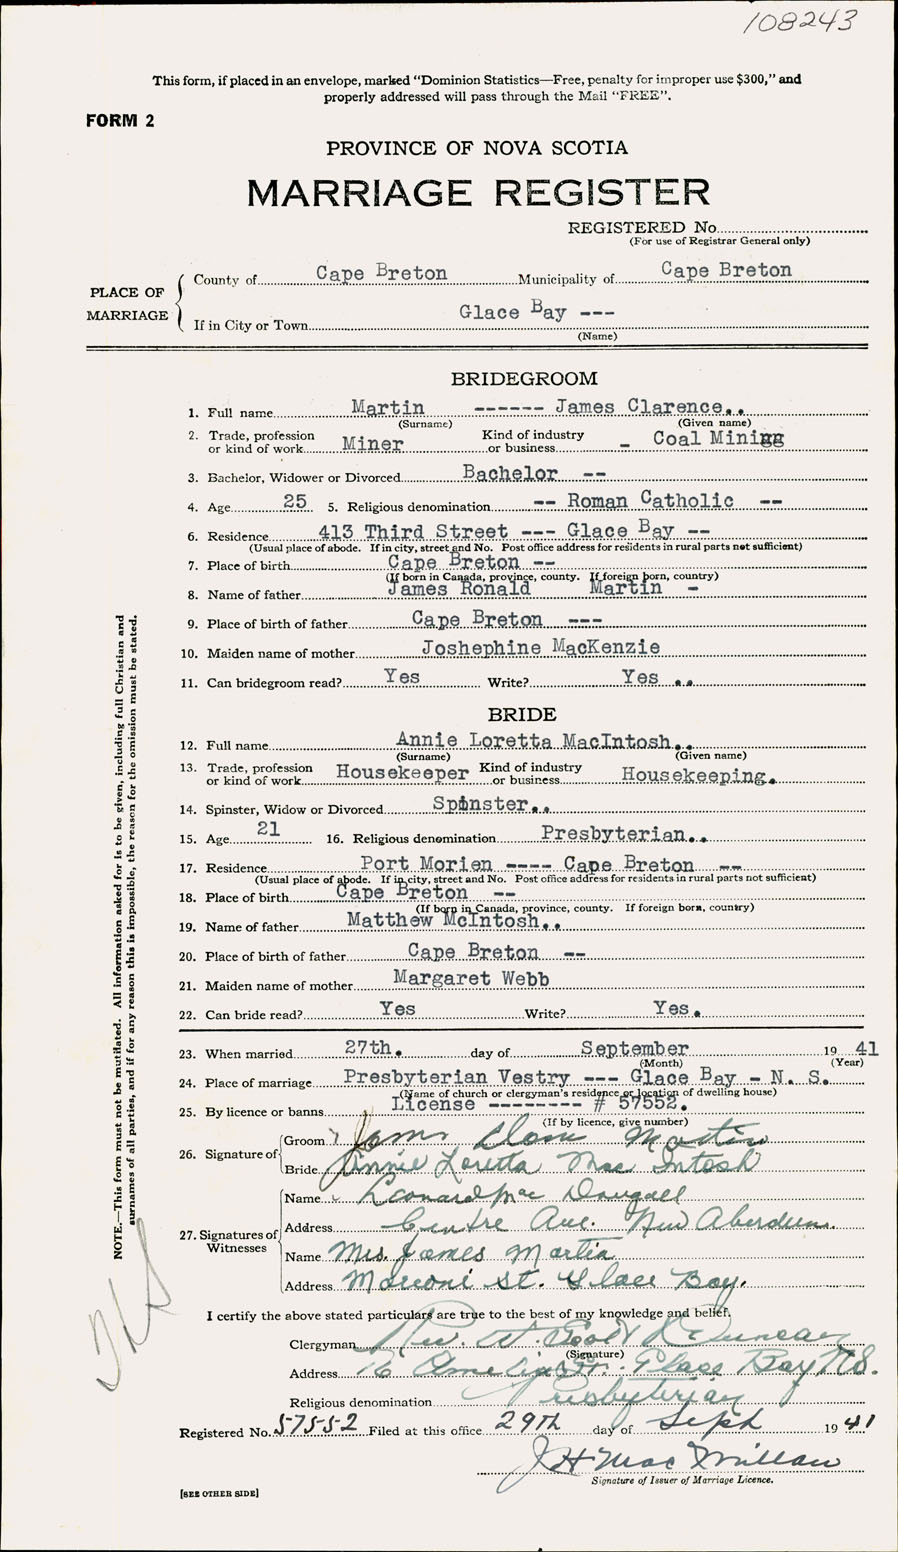 108243
This form, if placed in an envelope, marked "Dominion Statistics—Free, penalty for improper use $300," and
properly addressed will pass through the Mail "FREE".
FORM 2
PROVINCE OF NOVA SCOTIA
MARRIAGE REGISTER
REGISTERED No.
(For use of Registrar General only)
PLACE OF MARRIAGE
County of Cape Breton Municipality of Cape Breton
If in City or Town Glace Bay ---
(Name)
BRIDEGROOM
1. Full name Martin ------ James Clarence..
(Surname) (Given name)
2. Trade, profession or kind of work Miner Kind of industry or business - Coal Mining
3. Bachelor, Widower or Divorced Bachelor --
4. Age 25 5. Religious denomination -- Roman Catholic --
6. Residence 413 Third Street --- Glace Bay --
(Usual place of abode. If in city, street and No. Post office address for residents in rural parts not sufficient)
7. Place of birth Cape Breton --
(If born in Canada, province, county. If foreign born, country)
8. Name of father James Ronald Martin -
9. Place of birth of father Cape Breton ---
10. Maiden name of mother Joshephine MacKenzie
11. Can bridegroom read? Yes Write? Yes ..
BRIDE
12. Full name Annie Loretta MacIntosh..
(Surname) (Given name)
13. Trade, profession or kind of work Housekeeper Kind of industry or business Housekeeping.
14. Spinster, Widow or Divorced Spinster..
15. Age 21 16. Religious denomination Presbyterian..
17. Residence Port Morien ---- Cape Breton --
(Usual place of abode. If in city, street and No. Post office address for residents in rural parts not sufficient)
18. Place of birth Cape Breton --
(If born in Canada, province, county. If foreign born, country)
19. Name of father Matthew McIntosh..
20. Place of birth of father Cape Breton --
21. Maiden name of mother Margaret Webb
22. Can bride read? Yes Write? Yes.
23. When married 27th. day of September 19 41
(Month) (Year)
24. Place of marriage Presbyterian Vestry --- Glace Bay - N. S.
(Name of church or clergyman's residence or location of dwelling house)
25. By licence or banns License -------- # 57552.
(If by licence, give number)
26. Signature of
Groom James Martin
Bride Annie Loretta Mac Intosh
27. Signatures of Witnesses
Name Leonard Mac Dougall
Address Centre Ave. New Aberdeen.
Name Mrs. James Martin
Address Marconi St. Glace Bay.
I certify the above stated particulars are true to the best of my knowledge and belief.
Clergyman Rev. W.
(Signature)
Address 16 Amelia St. Glace Bay N.S.
Religious denomination Presbyterian
Registered No. 57552 Filed at this office 29th day of Sept 19 41
J H MacMillan
Signature of Issuer of Marriage Licence.
[SEE OTHER SIDE]
NOTE.—This form must not be mutilated. All information asked for is to be given, including full Christian and
surnames of all parties, and if for any reason this is impossible, the reason for the omission must be stated.